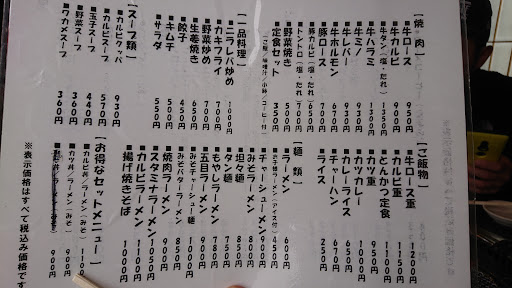 【焼 肉】
■牛ロース 950円
■牛カルビ 900円
■牛タン(塩・たれ) 1350円
■牛ハラミ 900円
■牛ミノ 900円
■牛レバー 930円
■牛ホルモン 670円
■豚ロース 700円
■豚カルビ(塩・たれ) 700円
■トントロ(塩・たれ) 700円
■野菜焼き 350円
■定食セット 500円
(ご飯/味噌汁/小鉢/コーヒー付)
【一品料理】
■ニラレバ炒め 1000円
■カキフライ 700円
■野菜炒め 700円
■生姜焼き 650円
■餃子 450円
■キムチ 500円
■サラダ 550円
【スープ類】
■カルビクッパ 930円
■カルビスープ 570円
■玉子スープ 440円
■野菜スープ 360円
■ワカメスープ 360円
【ご飯物】
■牛ロース重 1200円
■カルビ重 1150円
■とんかつ定食 1100円
■カツ重 950円
■カツカレー 900円
■カレーライス 650円
■チャーハン 670円
■ライス 250円
【麺 類】
■ラーメン 600円
■お子様ラーメン(アイス付) 450円
■チャーシューメン 900円
■みそラーメン
■坦々麺 850円
■タン麺 780円
■もやしラーメン
■五目ラーメン
■みそチャーシュー麺
■みそバターラーメン
■焼肉ラーメン 900円
■スタミナラーメン 1050円
■カルビラーメン 1100円
■揚げ焼きそば 1000円
【お得なセットメニュー】
■カルビ丼/ラーメン(みそ) 1100円
■カツ丼/ラーメン(みそ) 900円
※表示価格はすべて税込み価格です